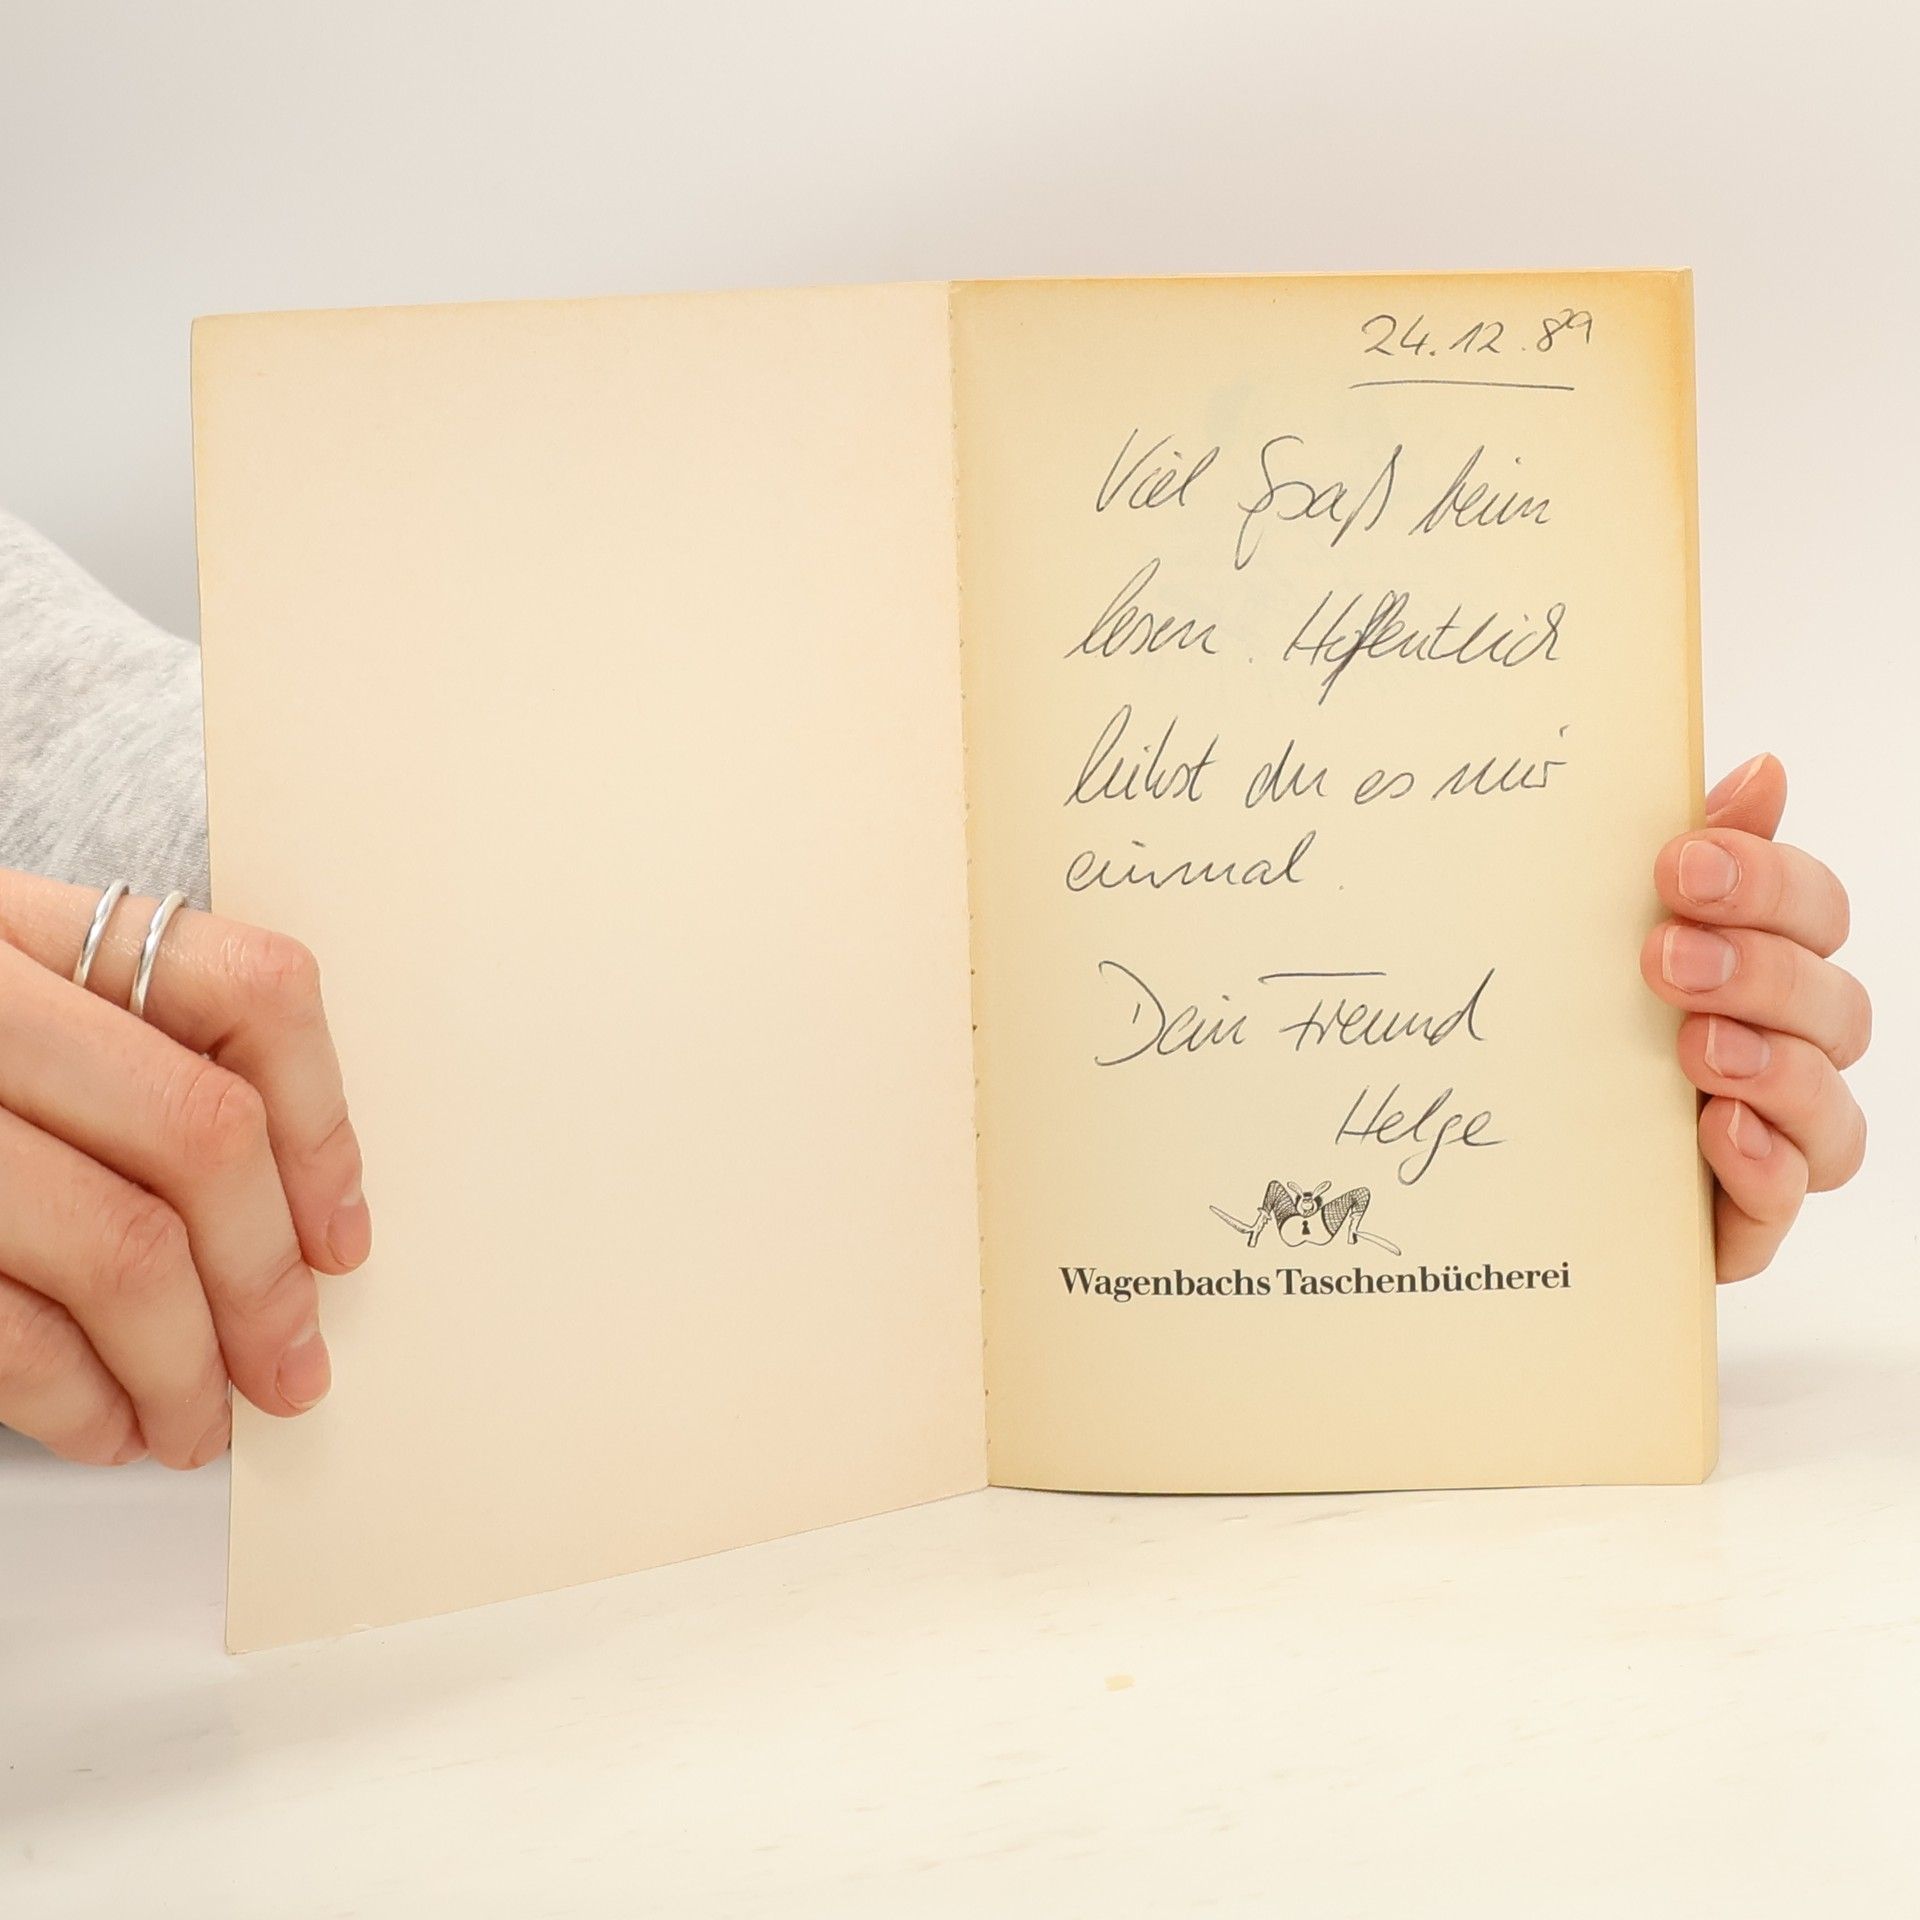 24.12.89
Viel Spaß beim
lesen. Hoffentlich
leihst du es mir
einmal.
Dein Freund
Helge
Wagenbachs Taschenbücherei